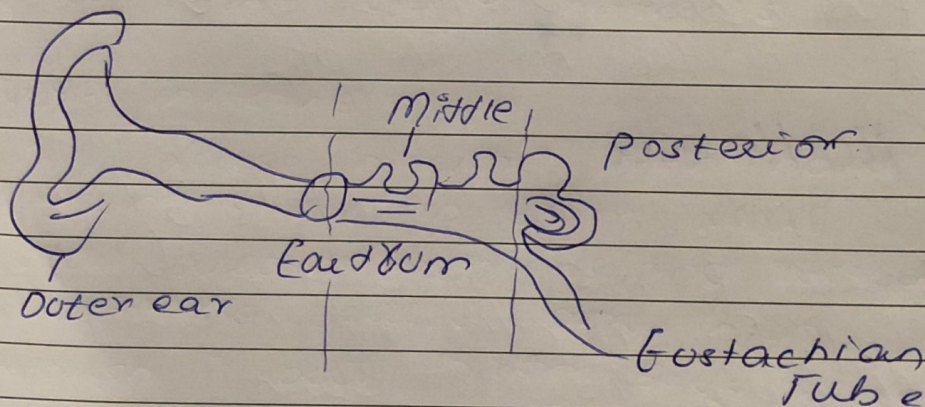 Middle
Posterior
Eardrum
Outer ear
Eustachian
Tube